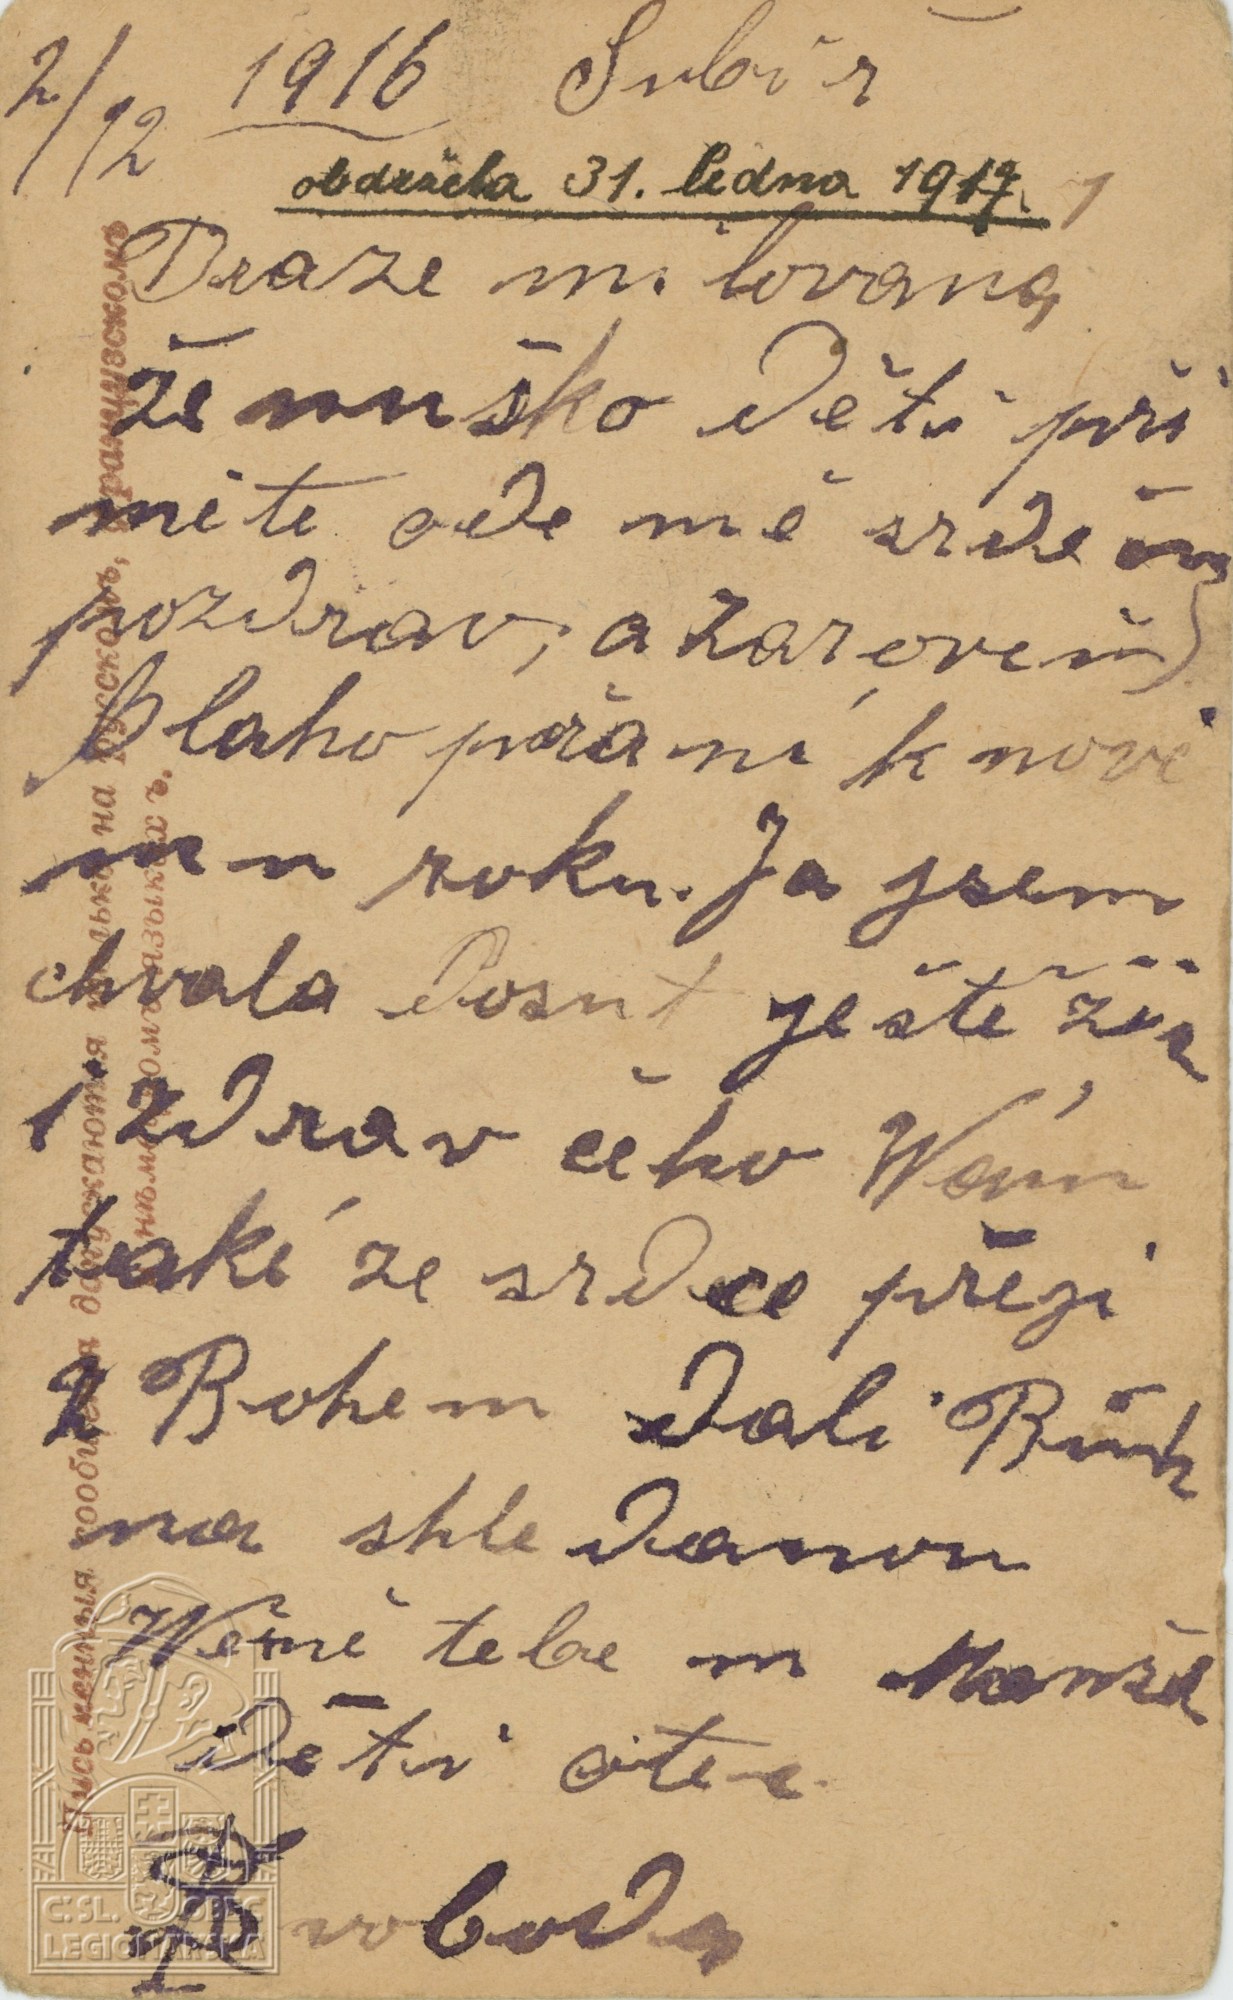 2/12 1916 Sibiř
obdržela 31. ledna 1917.
Draze milovaná
ženuško Děti při
měte ode mě srdečný
pozdrav, a zaroveň
Blaho přání k nové
mu roku. Ja jsem
chvala Posut ještě živ
i zdrav čeho Wám
také ze srdce přeji
z Bohem dali Bůh
na shledanou
Wěčně tebe m Manžel
Děti otec
Svoboda
Письменныя сообщенія допускаются только на русскомъ, французскомъ
и нѣмецкомъ языкахъ.
Č.SL. OBEC
LEGIONÁŘSKÁ